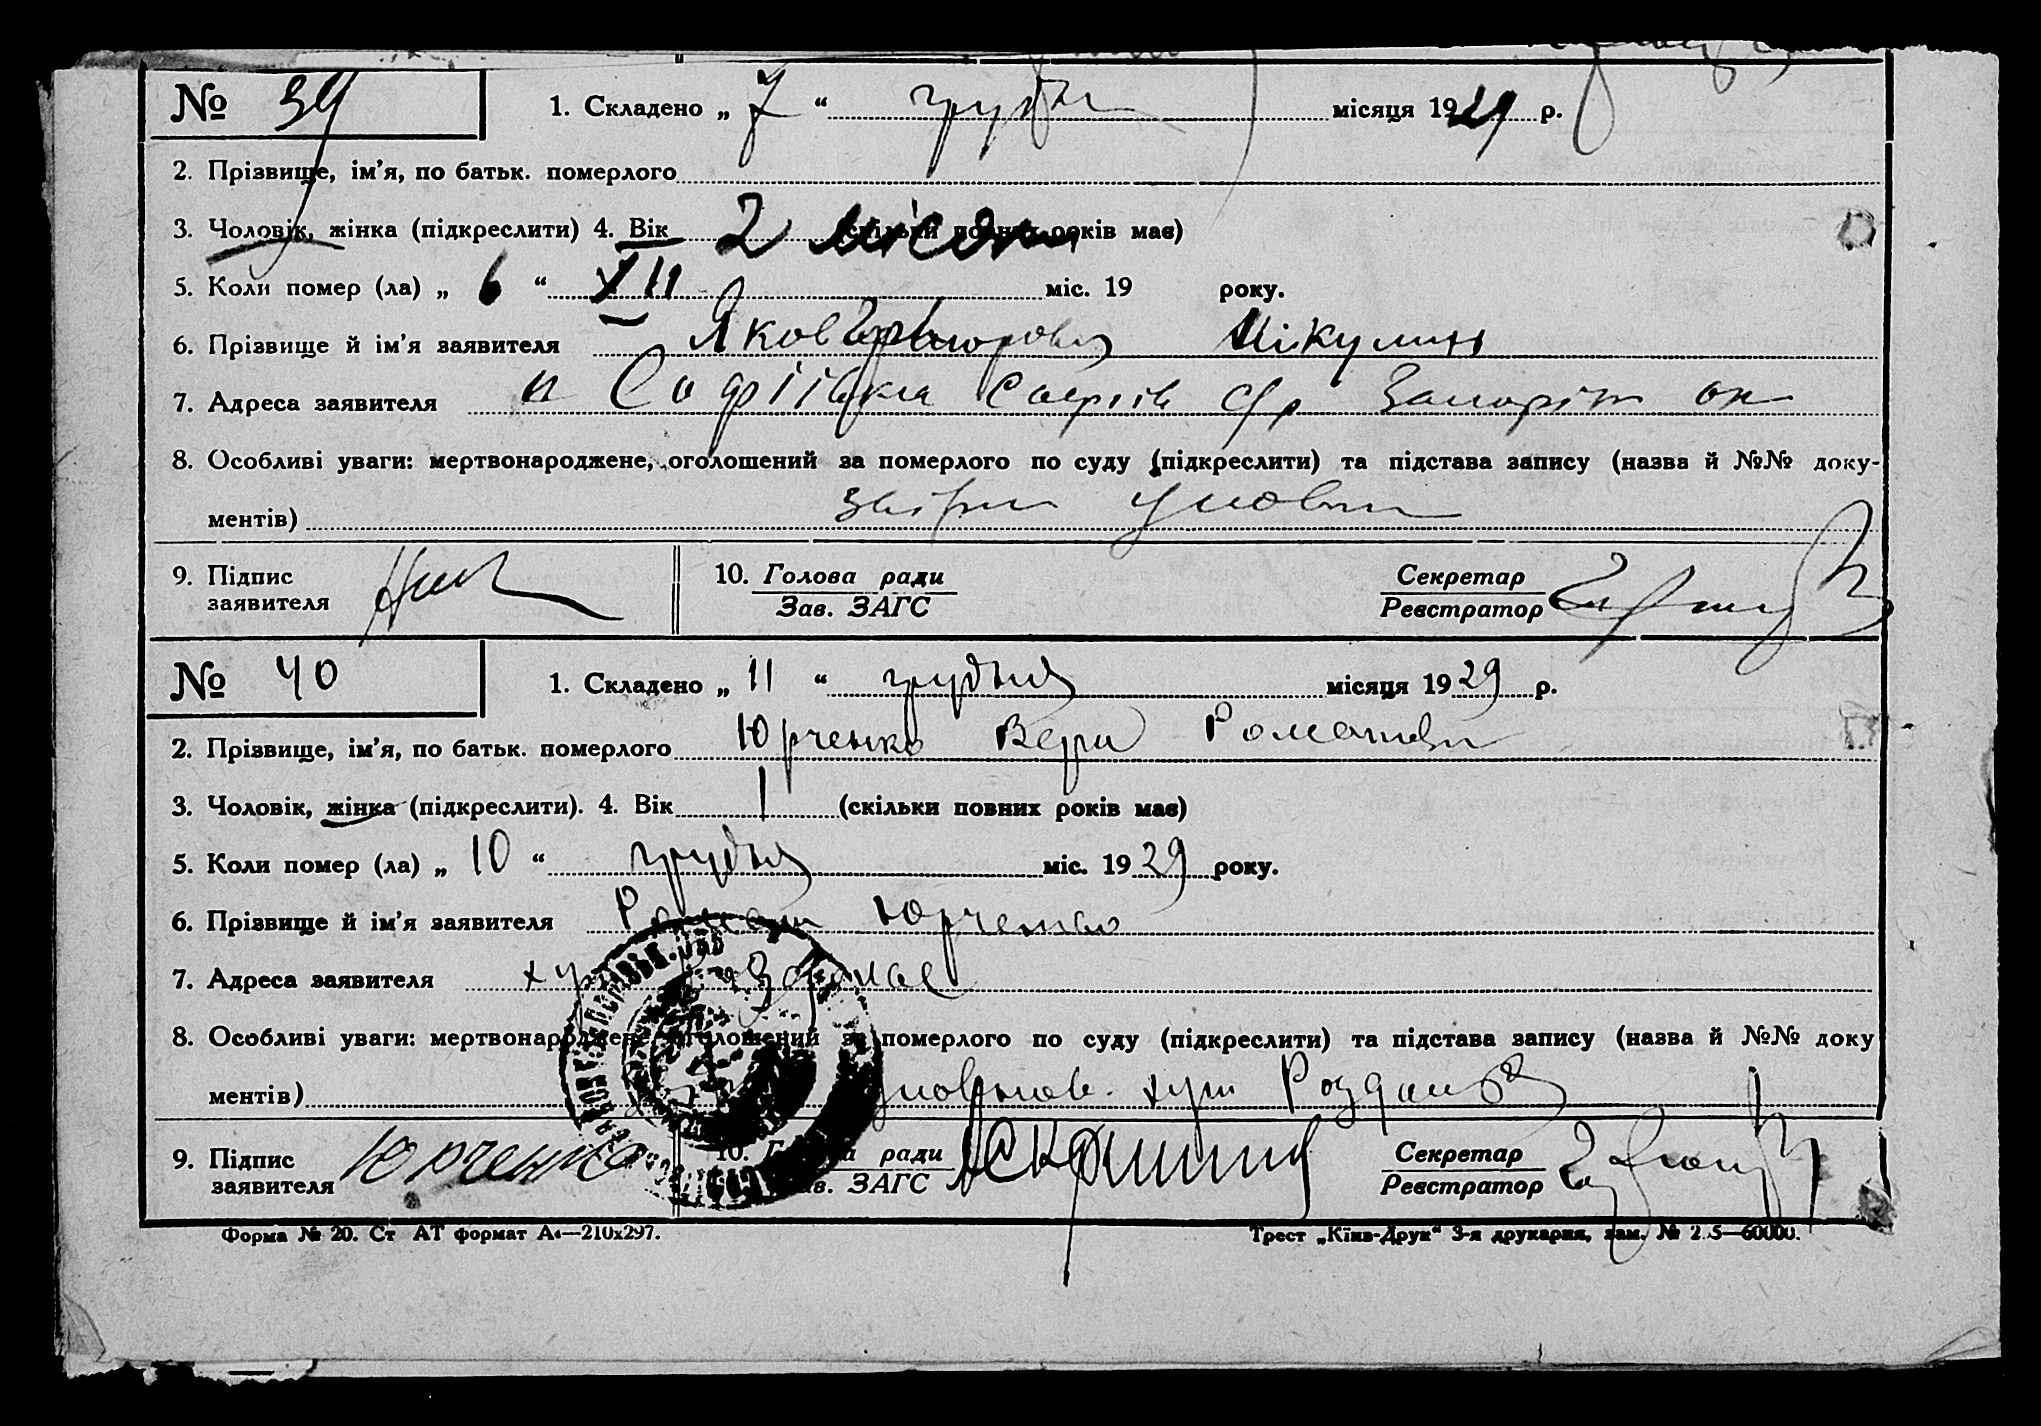 № 39 1. Складено „ 7 “ грудня місяця 1929 р.
2. Прізвище, ім'я, по батьк. померлого
3. Чоловік, жінка (підкреслити) 4. Вік 2 місяц (скільки повних років має)
5. Коли помер (ла) „ 6 “ XII міс. 19 року.
6. Прізвище й ім'я заявителя Яков Григорович Мікулин
7. Адреса заявителя Софіівка Софіів с/р Запоріж ок
8. Особливі уваги: мертвонароджене, оголошений за померлого по суду (підкреслити) та підстава запису (назва й №№ доку-
ментів)
9. Підпис заявителя 10. Голова ради Зав. ЗАГС Секретар Реєстратор
№ 40 1. Складено „ 11 “ грудня місяця 1929 р.
2. Прізвище, ім'я, по батьк. померлого Юрченко Вера Романовн
3. Чоловік, жінка (підкреслити). 4. Вік 1 (скільки повних років має)
5. Коли помер (ла) „ 10 “ грудня міс. 1929 року.
6. Прізвище й ім'я заявителя Роман Юрченко
7. Адреса заявителя хут
8. Особливі уваги: мертвонароджене, оголошений за померлого по суду (підкреслити) та підстава запису (назва й №№ доку
ментів) уповнов. хут
9. Підпис заявителя Юрченко 10. Голова ради Зав. ЗАГС Секретар Реєстратор
Форма № 20. Ст АТ формат А4—210х297. Трест „Київ-Друк“ 3-я друкарня, зам. №